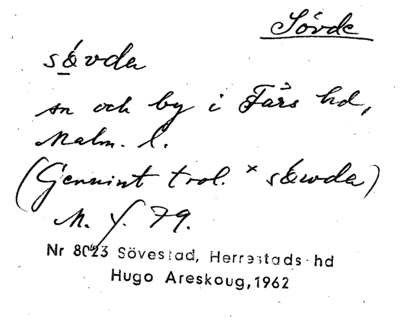 Sövde
sǿvda
sn och by i Färs hd,
Malm. l.
(Genuint trol. × sǿwda)
M. f. 79.
Nr 8023 Sövestad, Herrestads hd
Hugo Areskoug, 1962